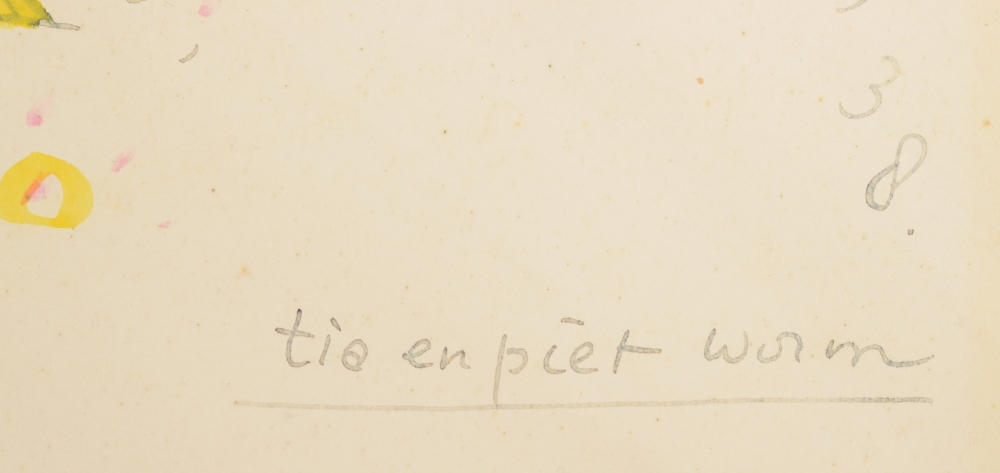 3
8.
tia en piet worm